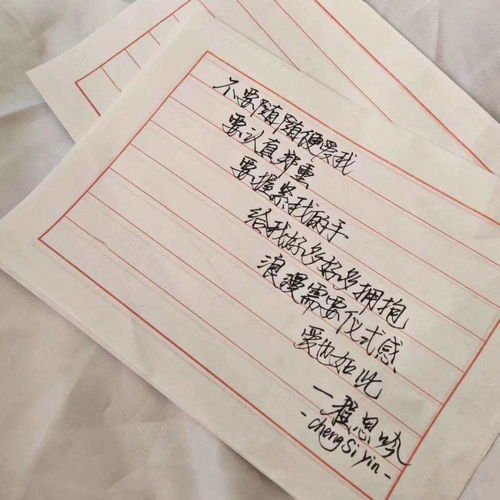 不要随随便爱我
要认真郑重
要握紧我的手
给我好多好多拥抱
浪漫需要仪式感
爱也如此
—程思吟
-chengsiyin-